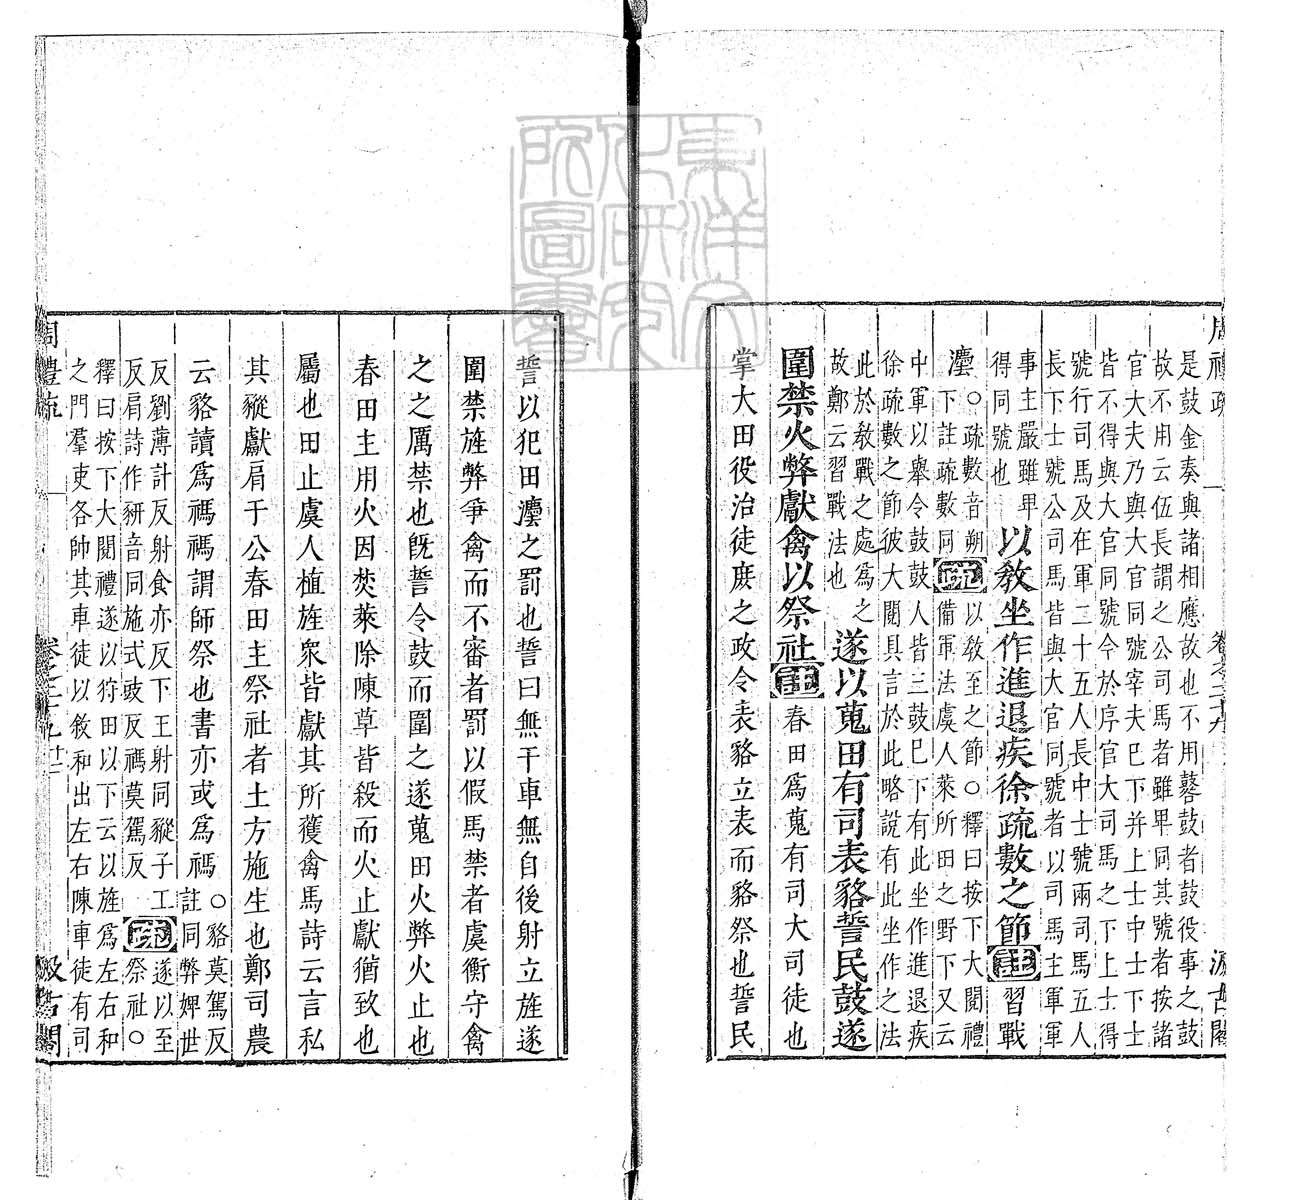 周禮疏
卷之二十九
汲古閣
是鼓金奏與諸相應故也不用鼛鼓者鼓役事之鼓
故不用云伍長謂之公司馬者雖卑同其號者按諸
官大夫乃與大官同號宰夫巳下并上士中士下士
皆不得與大官同號今於序官大司馬之下上士得
號行司馬及在軍二十五人長中士號兩司馬五人
長下士號公司馬皆與大官同號者以司馬主軍軍
事主嚴雖卑
得同號也
以教坐作進退疾徐疏數之節註習戰
灋
○疏數音朔
下註疏數同
疏
以教至之節○釋曰按下大閱禮
備軍法虞人萊所田之野下又云
中軍以鼙令鼓鼓人皆三鼓巳下有此坐作進退疾
徐疏數之節彼大閱具言於此略說有此坐作之法
此於教戰之處爲之
故鄭云習戰法也
遂以蒐田有司表貉誓民鼓遂
圍禁火弊獻禽以祭社註春田爲蒐有司大司徒也
掌大田役治徒庶之政令表貉立表而貉祭也誓民
誓以犯田灋之罰也誓曰無干車無自後射立旌遂
圍禁旌弊爭禽而不審者罰以假馬禁者虞衡守禽
之之厲禁也旣誓令鼓而圍之遂蒐田火弊火止也
春田主用火因焚萊除陳草皆殺而火止獻猶致也
屬也田止虞人植旌衆皆獻其所獲禽馬詩云言私
其豵獻肩于公春田主祭社者土方施生也鄭司農
云貉讀爲禡禡謂師祭也書亦或爲禡
○貉莫駕反
註同弊婢世
反劉薄計反射食亦反下王射同豵子工
反肩詩作豣音同施式豉反禡莫駕反
疏
遂以至
祭社○
釋曰按下大閱禮遂以狩田以下云以旌爲左右和
之門羣吏各帥其車徒以敘和出左右陳車徒有司
周禮疏
卷之二十九
十二
汲古閣
東洋文化研究所圖書